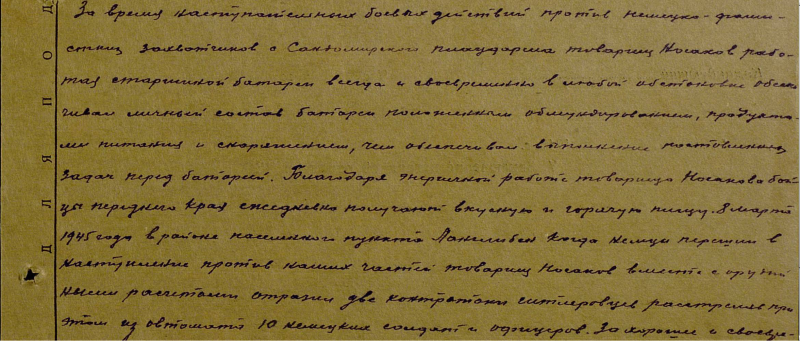 За время наступательных боевых действий против немецко-фаши-
стких захватчиков с Сандомирского плацдарма товарищ Носаков рабо-
тая старшиной батареи всегда и своевременно в любой обстановке обеспе-
чивал личный состав батареи положенным обмундированием, продукта-
ми питания и снаряжением, чем обеспечивал выполнение поставленных
задач перед батареей. Благодаря энергичной работе товарища Носакова бой-
цы переднего края ежедневно получают вкусную и горячую пищу. 8 марта
1945 года в районе населенного пункта когда немцы перешли в
наступление против наших частей товарищ Носаков вместе с орудий
ными расчетами отразил две контратаки гитлеровцев расстреляв при
этом из автомата 10 немецких солдат и офицеров. За хорошее и своевре-
ДЛЯ ПОД